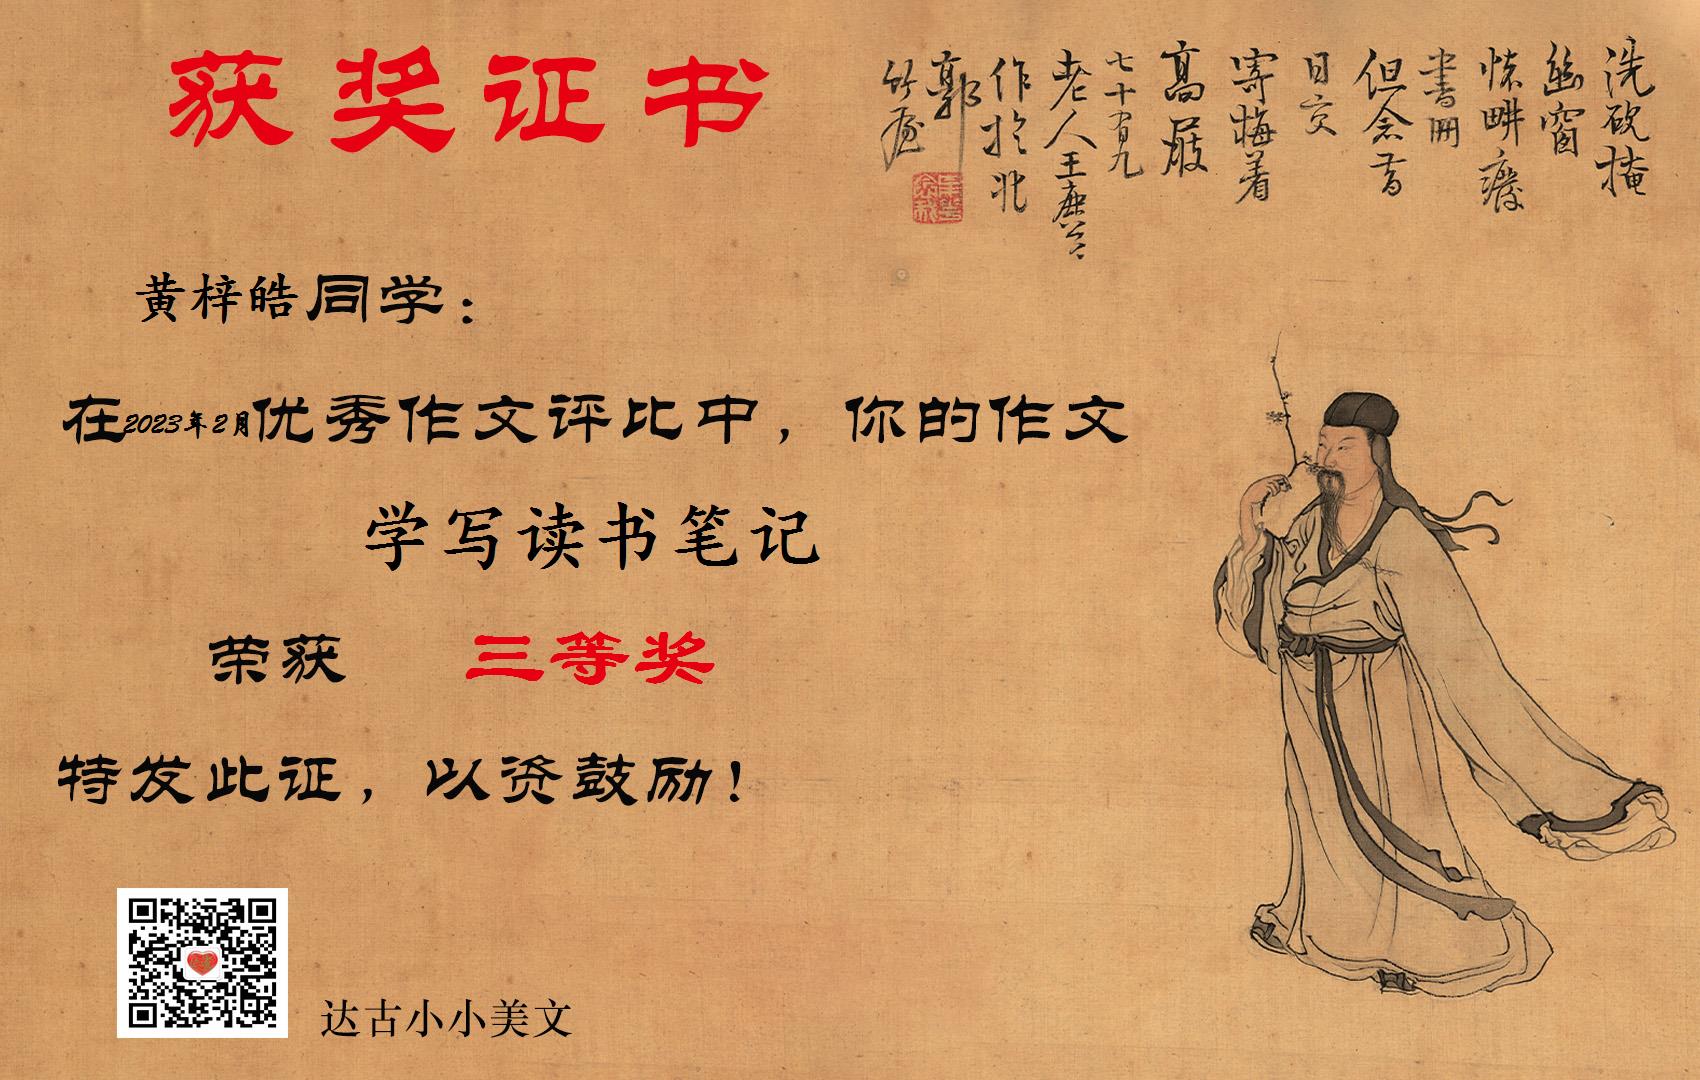 获奖证书
洗硯掩
幽窗
書冊
但念昔
日交
寄梅着
高
七十有九
老人王鹿公
作於北
郭
竹
黄梓皓同学：
在2023年2月优秀作文评比中，你的作文
学写读书笔记
荣获 三等奖
特发此证，以资鼓励！
达古小小美文